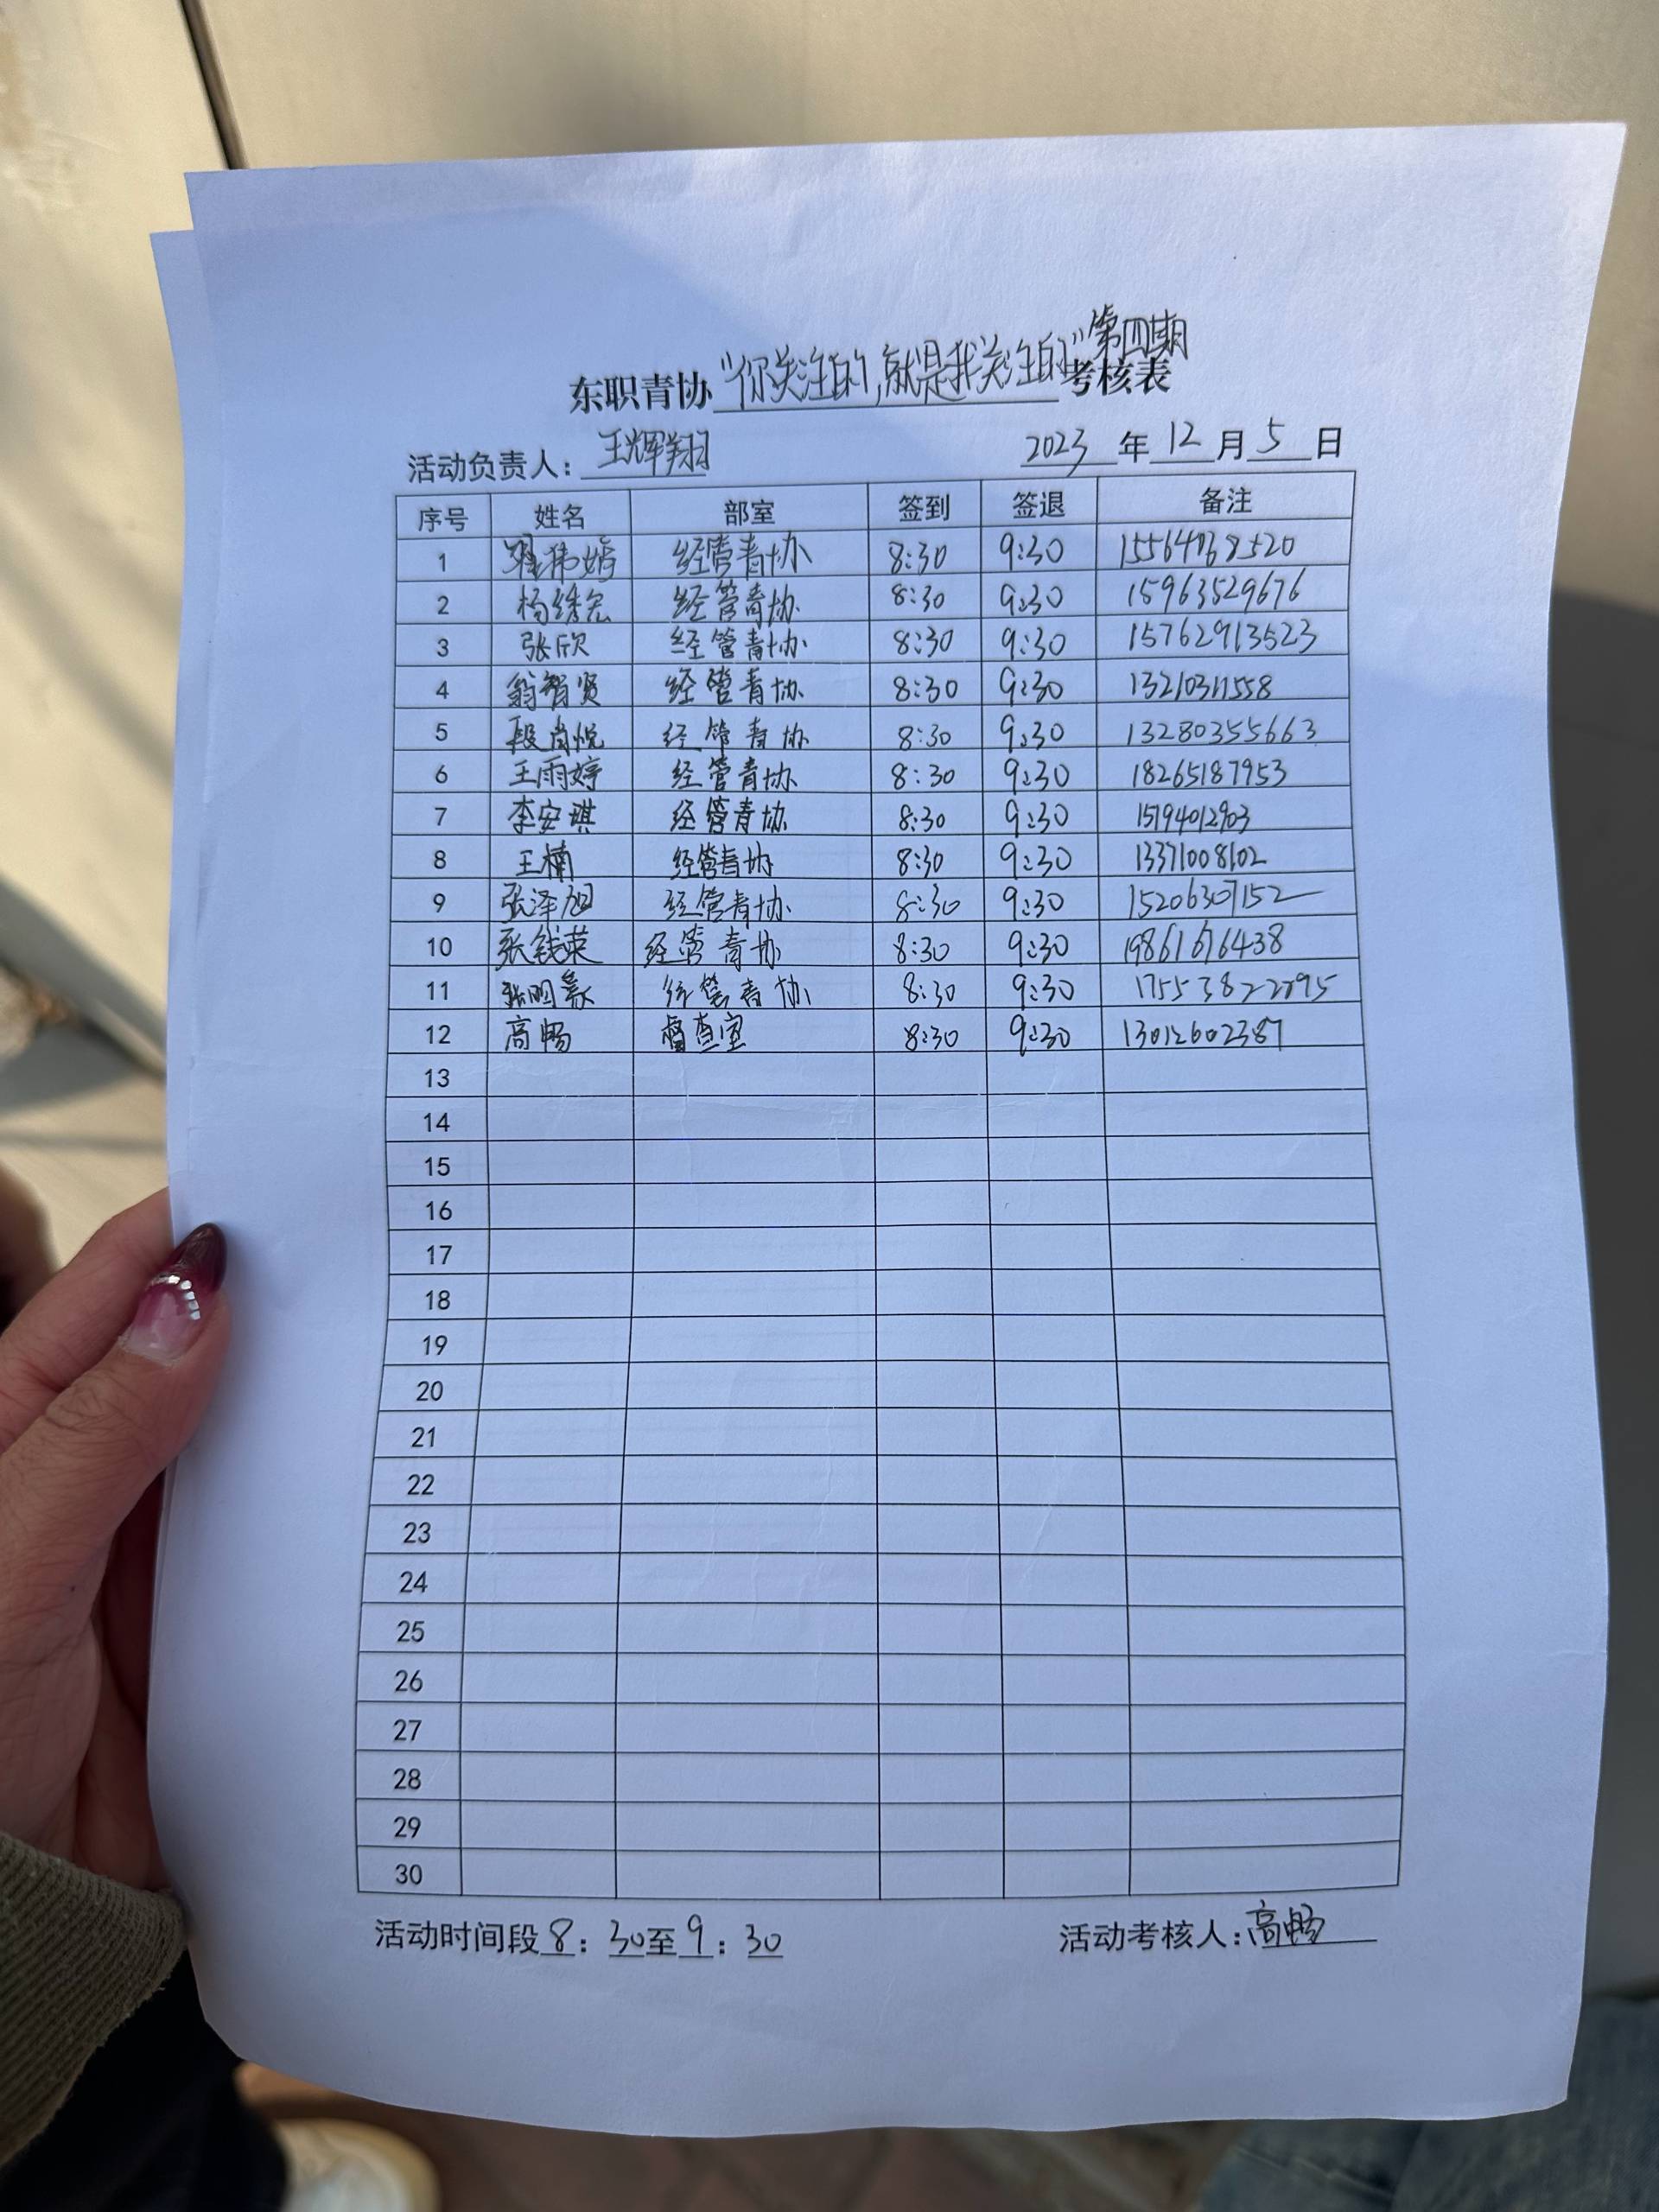 东职青协"你关注的,就是我关注的"第四期考核表
活动负责人: 王辉翔 2023 年 12 月 5 日
序号 姓名 部室 签到 签退 备注
1 经管青协 8:30 9:30
2 经管青协 8:30 9:30 15963529676
3 张欣 经管青协 8:30 9:30 15762913523
4 翁智贤 经管青协 8:30 9:30 13210311558
5 段肖悦 经管青协 8:30 9:30 13280355663
6 王雨婷 经管青协 8:30 9:30 18265187953
7 李安琪 经管青协 8:30 9:30 15194012903
8 王楠 经管青协 8:30 9:30 13371008102
9 张泽旭 经管青协 8:30 9:30 15206307152
10 经管青协 8:30 9:30 19861676438
11 经管青协 8:30 9:30
12 高畅 督查室 8:30 9:30 13012602387
13
14
15
16
17
18
19
20
21
22
23
24
25
26
27
28
29
30
活动时间段 8: 30至 9: 30 活动考核人:高畅